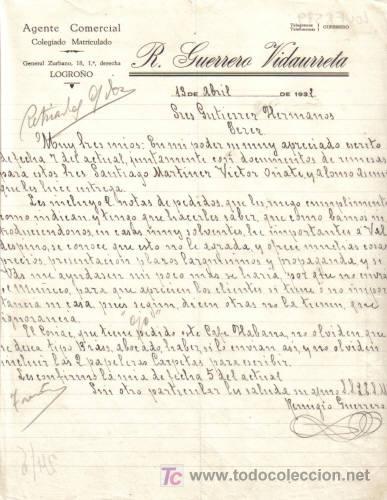 Agente Comercial
Colegiado Matriculado
General Zurbano, 18, 1.º, derecha
LOGROÑO
Telegramas
Telefonemas
GUERRERO
R. Guerrero Vidaurreta
13 de Abril de 1932
Sres Gutierrez Hermanos
Jerez
Muy Sres mios: En mi poder su muy apreciado escrito
de fecha 7 del actual, juntamente con documentos de remesas
para estos Sres Santiago Martinez Victor Oñate y Alonso
que les hice entrega.
Les incluyo 2 notas de pedidos, que les ruego cumplimenten
como indican, y tengo que hacerles saber, que como vamos in
troduciendonos, en casas muy solventes, les importantes a Val
despino, se conoce que esto no le agrada, y ofrece muchas cosas,
precios, presentacion plazos larguisimos y propaganda y se
Vds me ayudasen un poco mas se haria, por que no envian
el para que aprecien los clientes si tiene ó no impor
tancia su casa pues segun dicen otras no la tienen, que
ignorancia.
"ojo"
El Coñac que tiene pedido este Cafe Habana, no olviden que
se desea tipo haber, si lo envian asi, y no olviden
incluir las 2 papeleras Carpetas para escribir.
Les confirmo la mia de fecha 5 del actual
Sin otro particular les saluda su afmo
Remigio Guerrero
TC www.todocoleccion.net